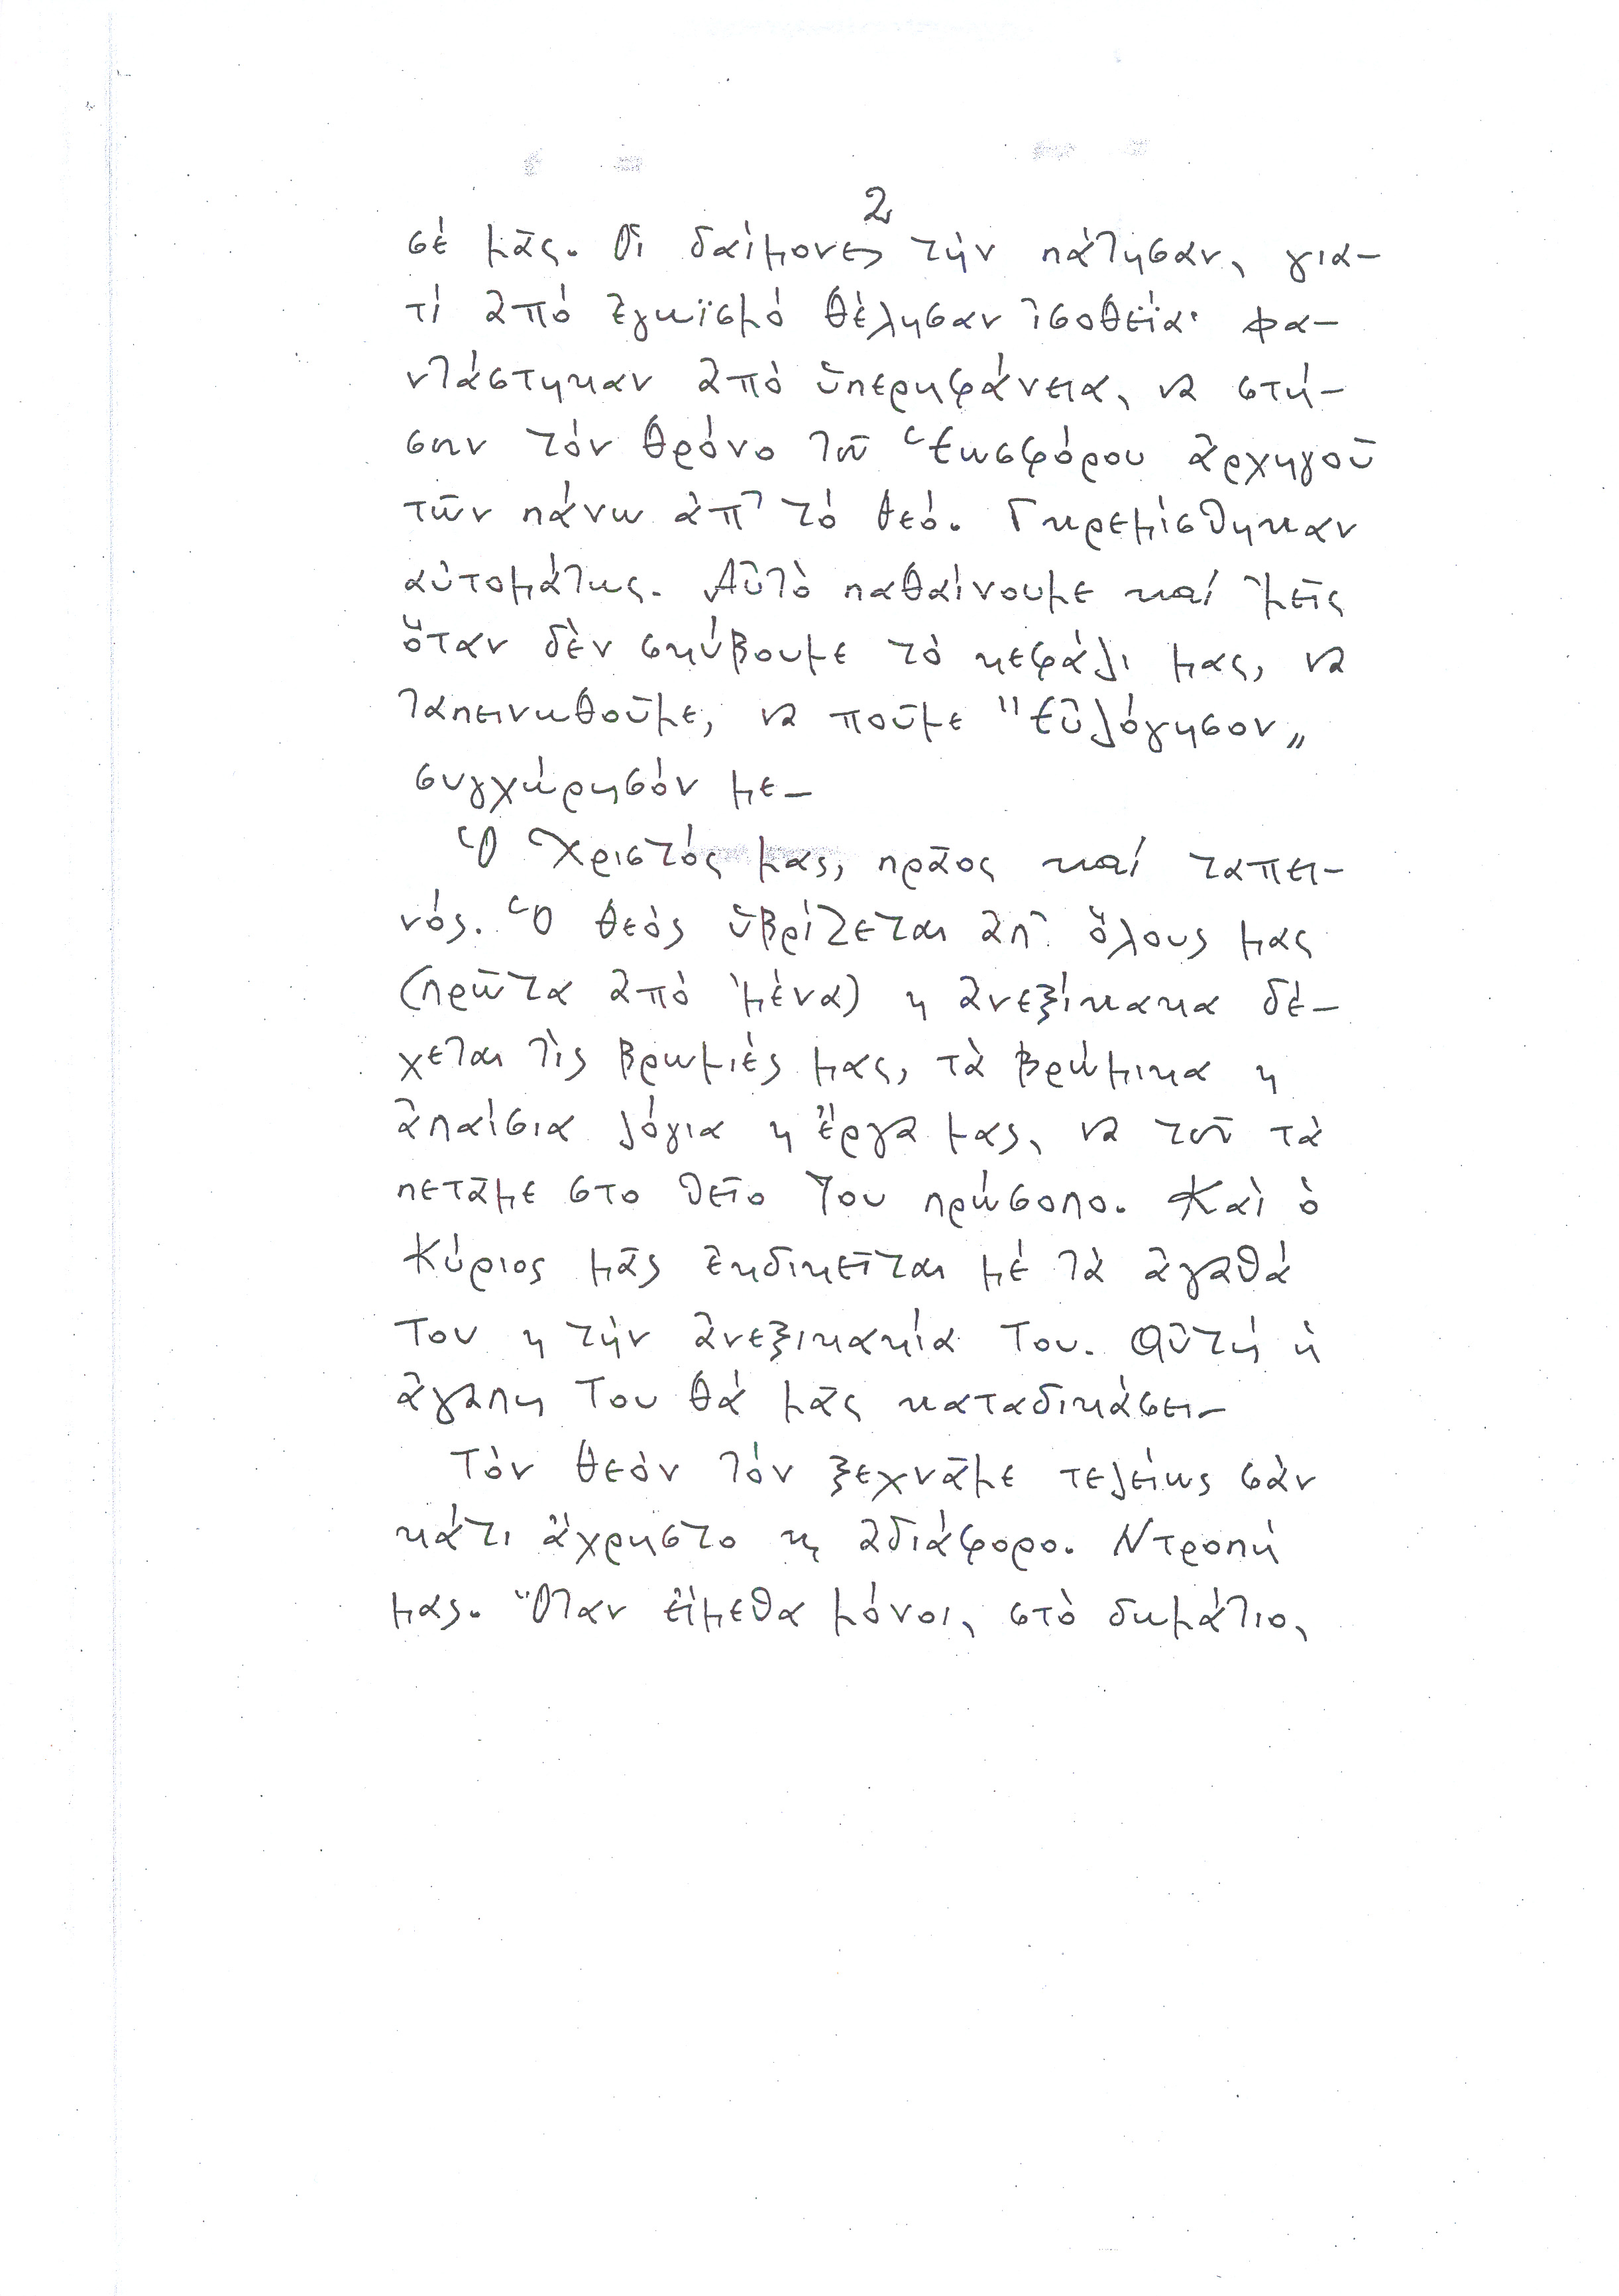 2
σέ μᾶς. Οἱ δαίμονες τήν πάτησαν, για-
τί ἀπό ἐγωϊσμό θέλησαν ἰσοθεΐα· φα-
ντάστηκαν ἀπό ὑπερηφάνεια, να στή-
σουν τόν θρόνο τοῦ Ἑωσφόρου ἀρχηγοῦ
τῶν πάνω ἀπ' τό Θεό. Γκρεμίσθηκαν
αὐτομάτως. Αὐτό παθαίνουμε καί 'μεῖς
ὅταν δὲν σκύβουμε τὸ κεφάλι μας, να
ταπεινωθοῦμε, να ποῦμε "Εὐλόγησον„
συγχώρησόν με–
Ὁ Χριστός μας, πρᾶος καί ταπει-
νός. Ὁ Θεὸς ὑβρίζεται ἀπ' ὅλους μας
(πρῶτα ἀπὸ 'μένα) κ ἀνεξίκακα δέ-
χεται τὶς βρωμιές μας, τὰ βρώμικα κ
ἀπαίσια λόγια κ ἔργα μας, να τοῦ τὰ
πετᾶμε στο θεῖο Του πρώσοπο. Καὶ ὁ
Κύριος μᾶς ἐκδικεῖται μέ τὰ ἀγαθά
Του κ τήν ἀνεξικακία Του. Αὐτή ἡ
ἀγάπη Του θά μᾶς καταδικάσει–
Τὸν Θεὸν τόν ξεχνᾶμε τελείως σὰν
κάτι ἄχρηστο κ ἀδιάφορο. Ντροπή
μας. Ὅταν εἴμεθα μόνοι, στὸ δωμάτιο,